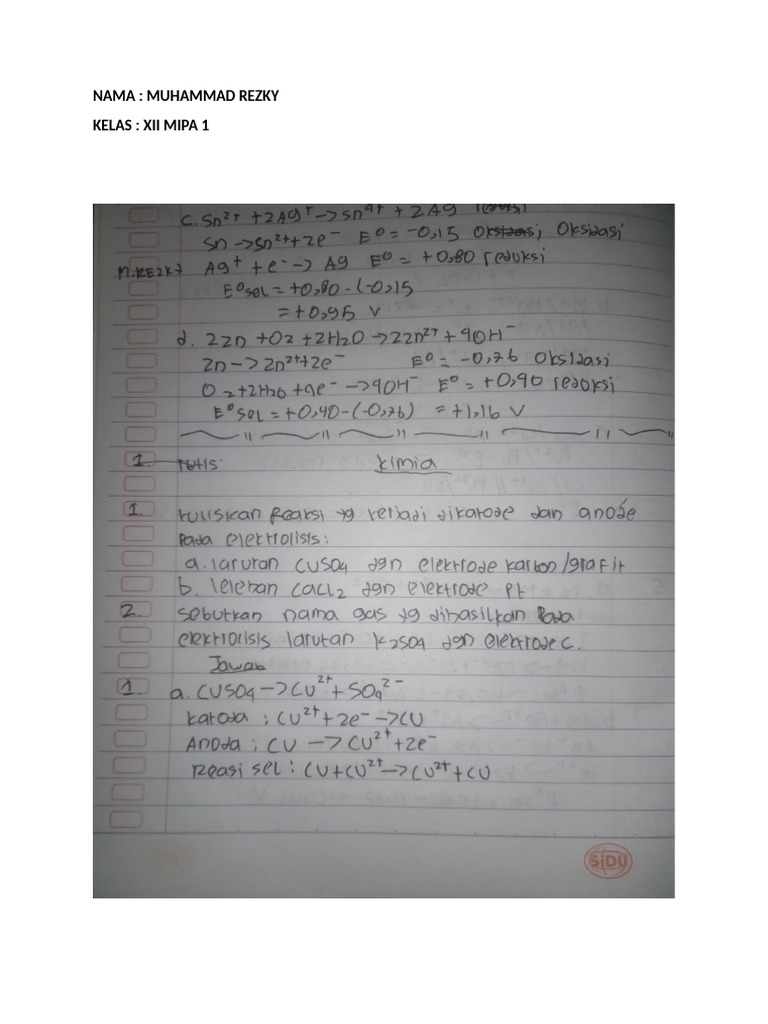 NAMA : MUHAMMAD REZKY
KELAS : XII MIPA 1
C. Sn²⁺ + 2Ag⁺ → Sn⁴⁺ + 2Ag
Sn → Sn²⁺ + 2e⁻ E⁰ = -0,15 Oksidasi
M.REZKY Ag⁺ + e⁻ → Ag E⁰ = +0,80 reduksi
E⁰sel = +0,80 - (-0,15
= +0,95 V
d. 2Zn + O2 + 2H2O → 2Zn²⁺ + 4OH⁻
Zn → Zn²⁺ + 2e⁻ E⁰ = -0,76 Oksidasi
O2 + 2H2O + 4e⁻ → 4OH⁻ E⁰ = +0,40 reduksi
E⁰sel = +0,40 - (-0,76) = +1,16 V
Kimia
1. tuliskan Reaksi yg terjadi dikatode dan anode
Pada elektrolisis:
a. larutan CuSO4 dgn elektrode karbon/grafit
b. leleran CaCl2 dgn elektrode Pt
2. Sebutkan nama gas yg dihasilkan Pada
elektrolisis larutan K2SO4 dgn elektrode C.
Jawab
1. a. CuSO4 → Cu²⁺ + SO4²⁻
Katoda : Cu²⁺ + 2e⁻ → Cu
Anoda : Cu → Cu²⁺ + 2e⁻
Reasi sel : Cu + Cu²⁺ → Cu²⁺ + Cu
SiDU